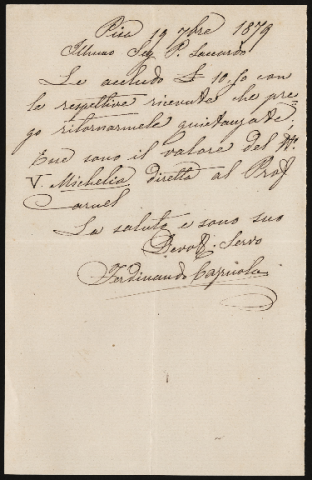 Pisa 19 7bre 1879
Illmo Sig P. Saccardo
Le accludo £ 10.50 con
le respettive ricevute che pre-
go ritornarmele quietanzate.
Che sono il valore del N°
V. Michelia diretta al Prof
Caruel
La saluto e sono suo
Devot. Servo
Ferdinando